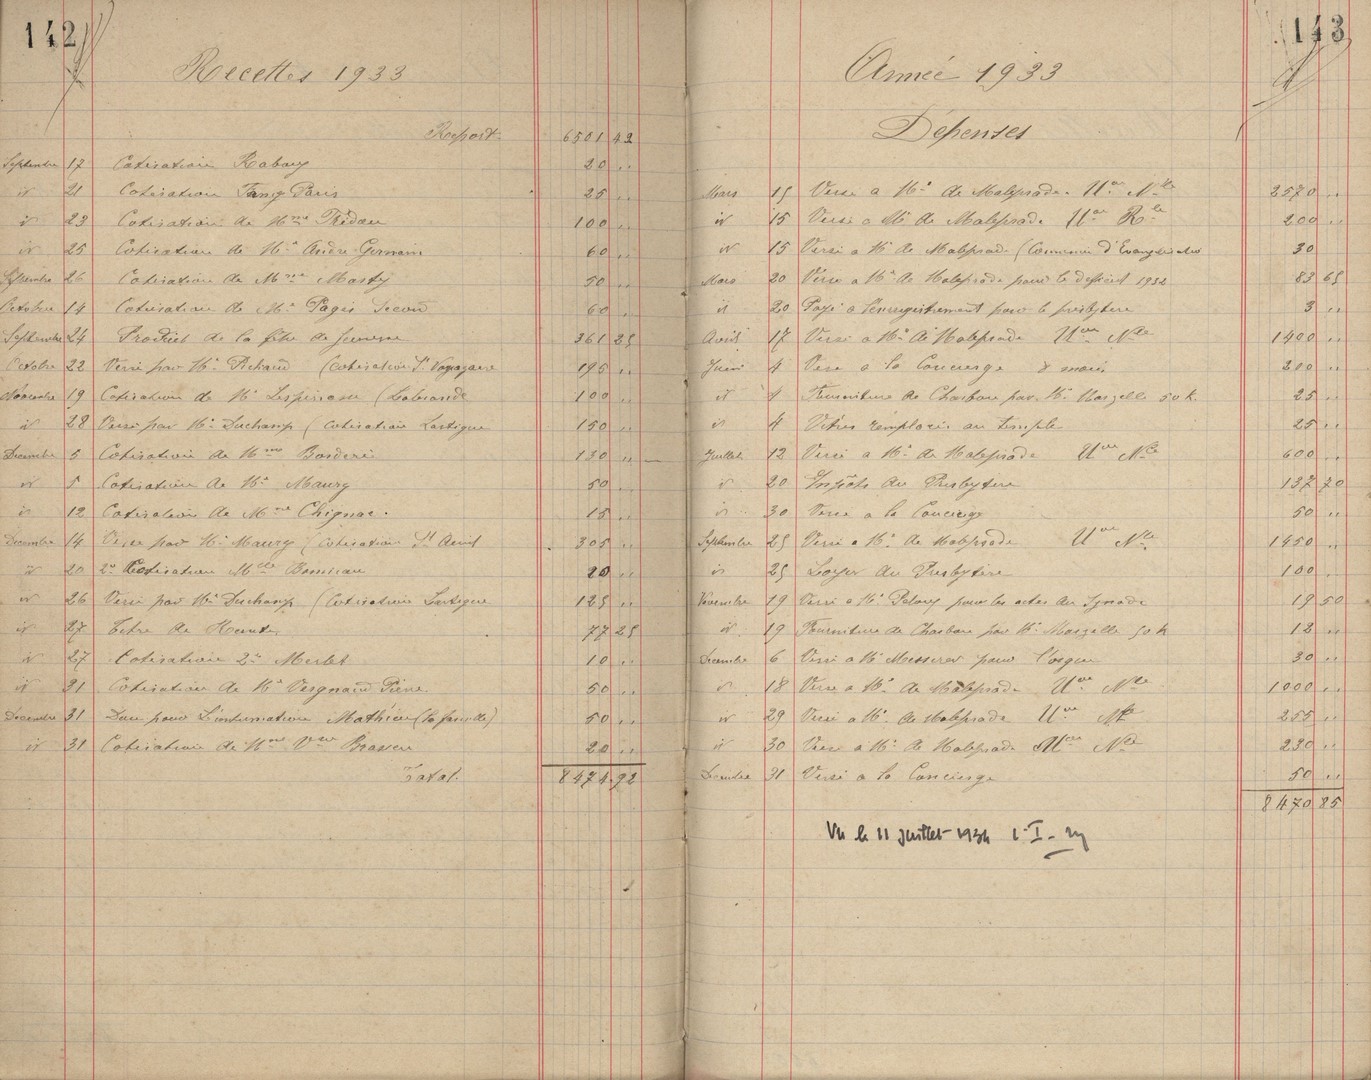 142
Recettes 1933
Report 6501 42
Septembre 17 Cotisation Rabouy 20 "
id 21 Cotisation Tanq Paris 25 "
id 23 Cotisation de Mme Trédau 100 "
id 25 Cotisation de Mr André Germain 60 "
Septembre 26 Cotisation de Mme Masty 50 "
Octobre 14 Cotisation de Mr Pagès 60 "
Septembre 24 Produit de la fête de Jeunesse 361 25
Octobre 22 Versé par Mr Richaud (cotisation St 195 "
Novembre 19 Cotisation de Mr Lespinasse (Lalande 100 "
id 28 Versé par Mr Duchamp (cotisation Lartigue 150 "
Decembre 5 Cotisation de Mme Borderie 130 "
id 5 Cotisation de Mr Maury 50 "
id 12 Cotisation de Mme Chignac. 15 "
Decembre 14 Versé par Mr Maury (cotisation St Avit 305 "
id 20 2e Cotisation Melle 20 "
id 26 Versé par Mr Duchamp (Cotisation Lartigue 125 "
id 27 77 25
id 27 Cotisation 2e Merlet 10 "
id 31 Cotisation de Mr Vergnaud Pierre 50 "
Decembre 31 Dû pour L'inhumation Mathieu (la famille) 50 "
id 31 Cotisation de Mme Vve 20 "
Total. 8474.92
143
Année 1933
Dépenses
Mars 15 Versé a Mr de Maleprade. Uon Nle 2570 "
id 15 Versé a Mr de Maleprade Uon Rle 200 "
id 15 Versé a Mr de Maleprade (Commission d'Evangelisation 30
Mars 20 Versé a Mr de Maleprade pour le deficit 1932 83 65
id 20 Payé a l'enregistrement pour le presbytere 3 "
Avril 17 Versé a Mr de Maleprade Uon Nle 1400 "
Juin 4 Versé a la Concierge 8 mois 200 "
id 4 Fourniture de Charbon par Mr Mazelle 50 k. 25 "
id 4 Vitres remplacé au temple 25 "
Juillet 12 Versé a Mr de Maleprade Uon Nle 600 "
id 20 Impôts du Presbytere 137 70
id 30 Versé a la Concierge 50 "
Septembre 25 Versé a Mr de Maleprade Uon Nle 1450 "
id 25 Loyer du Presbytère 100
Novembre 19 Versé a Mr Peloux pour les actes du Synode 19 50
id 19 Fourniture de Charbon par Mr Mazelle 50 k 12 "
Decembre 6 Versé a Mr Messerer pour l'orgue 30 "
id 18 Versé a Mr de Maleprade Uon Nle 1000 "
id 29 Versé a Mr de Maleprade Uon Nle 255 "
id 30 Versé a Mr de Maleprade Uon Nle 230 "
Decembre 31 Versé a la Concierge 50 "
8470 85
Vu le 11 juillet 1934